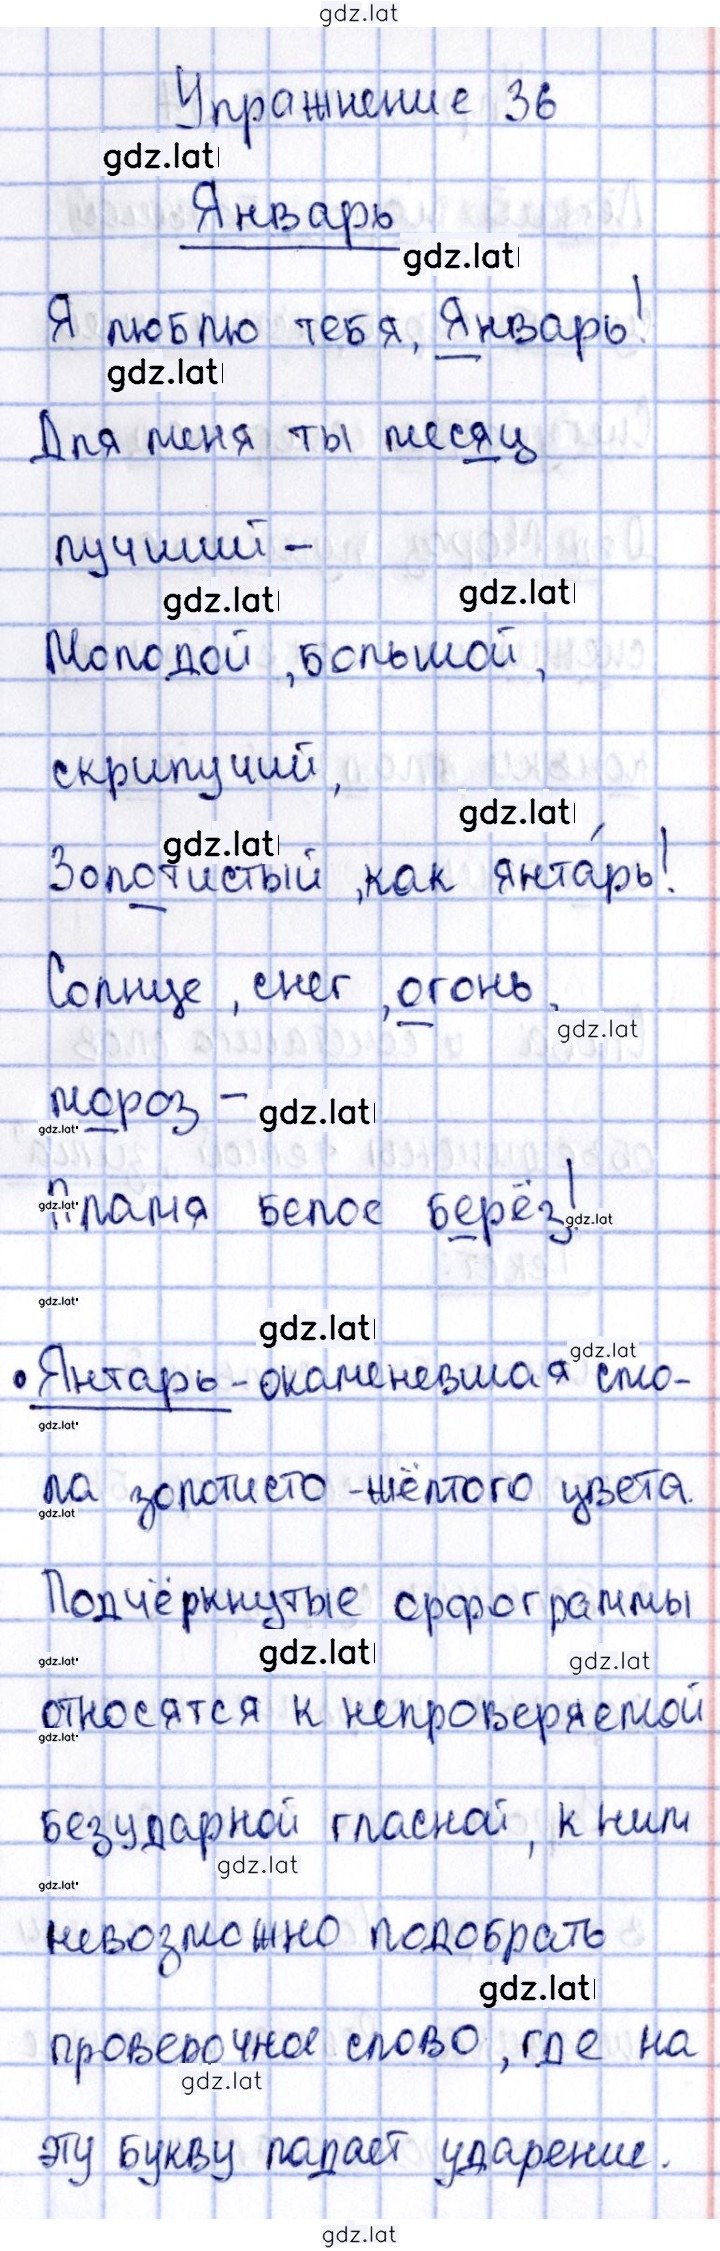 gdz.lat
Упражнение 36
gdz.lat
Январь
gdz.lat
Я люблю тебя, Январь!
gdz.lat
Для меня ты месяц
лучший –
gdz.lat gdz.lat
Молодой, большой,
скрипучий,
gdz.lat
gdz.lat
Золотистый, как янта́рь!
Солнце, снег, огонь,
gdz.lat
мороз – gdz.lat
gdz.lat
gdz.lat Пламя белое берёз! gdz.lat
gdz.lat
gdz.lat
gdz.lat
• Янтарь – окаменевшая смо-
gdz.lat
ла золотисто-жёлтого цвета.
gdz.lat
Подчёркнутые орфограммы
gdz.lat gdz.lat gdz.lat
относятся к непроверяемой
gdz.lat
безударной гласной, к ним
gdz.lat
gdz.lat
невозможно подобрать
gdz.lat
проверочное слово, где на
gdz.lat
эту букву падает ударение.
gdz.lat